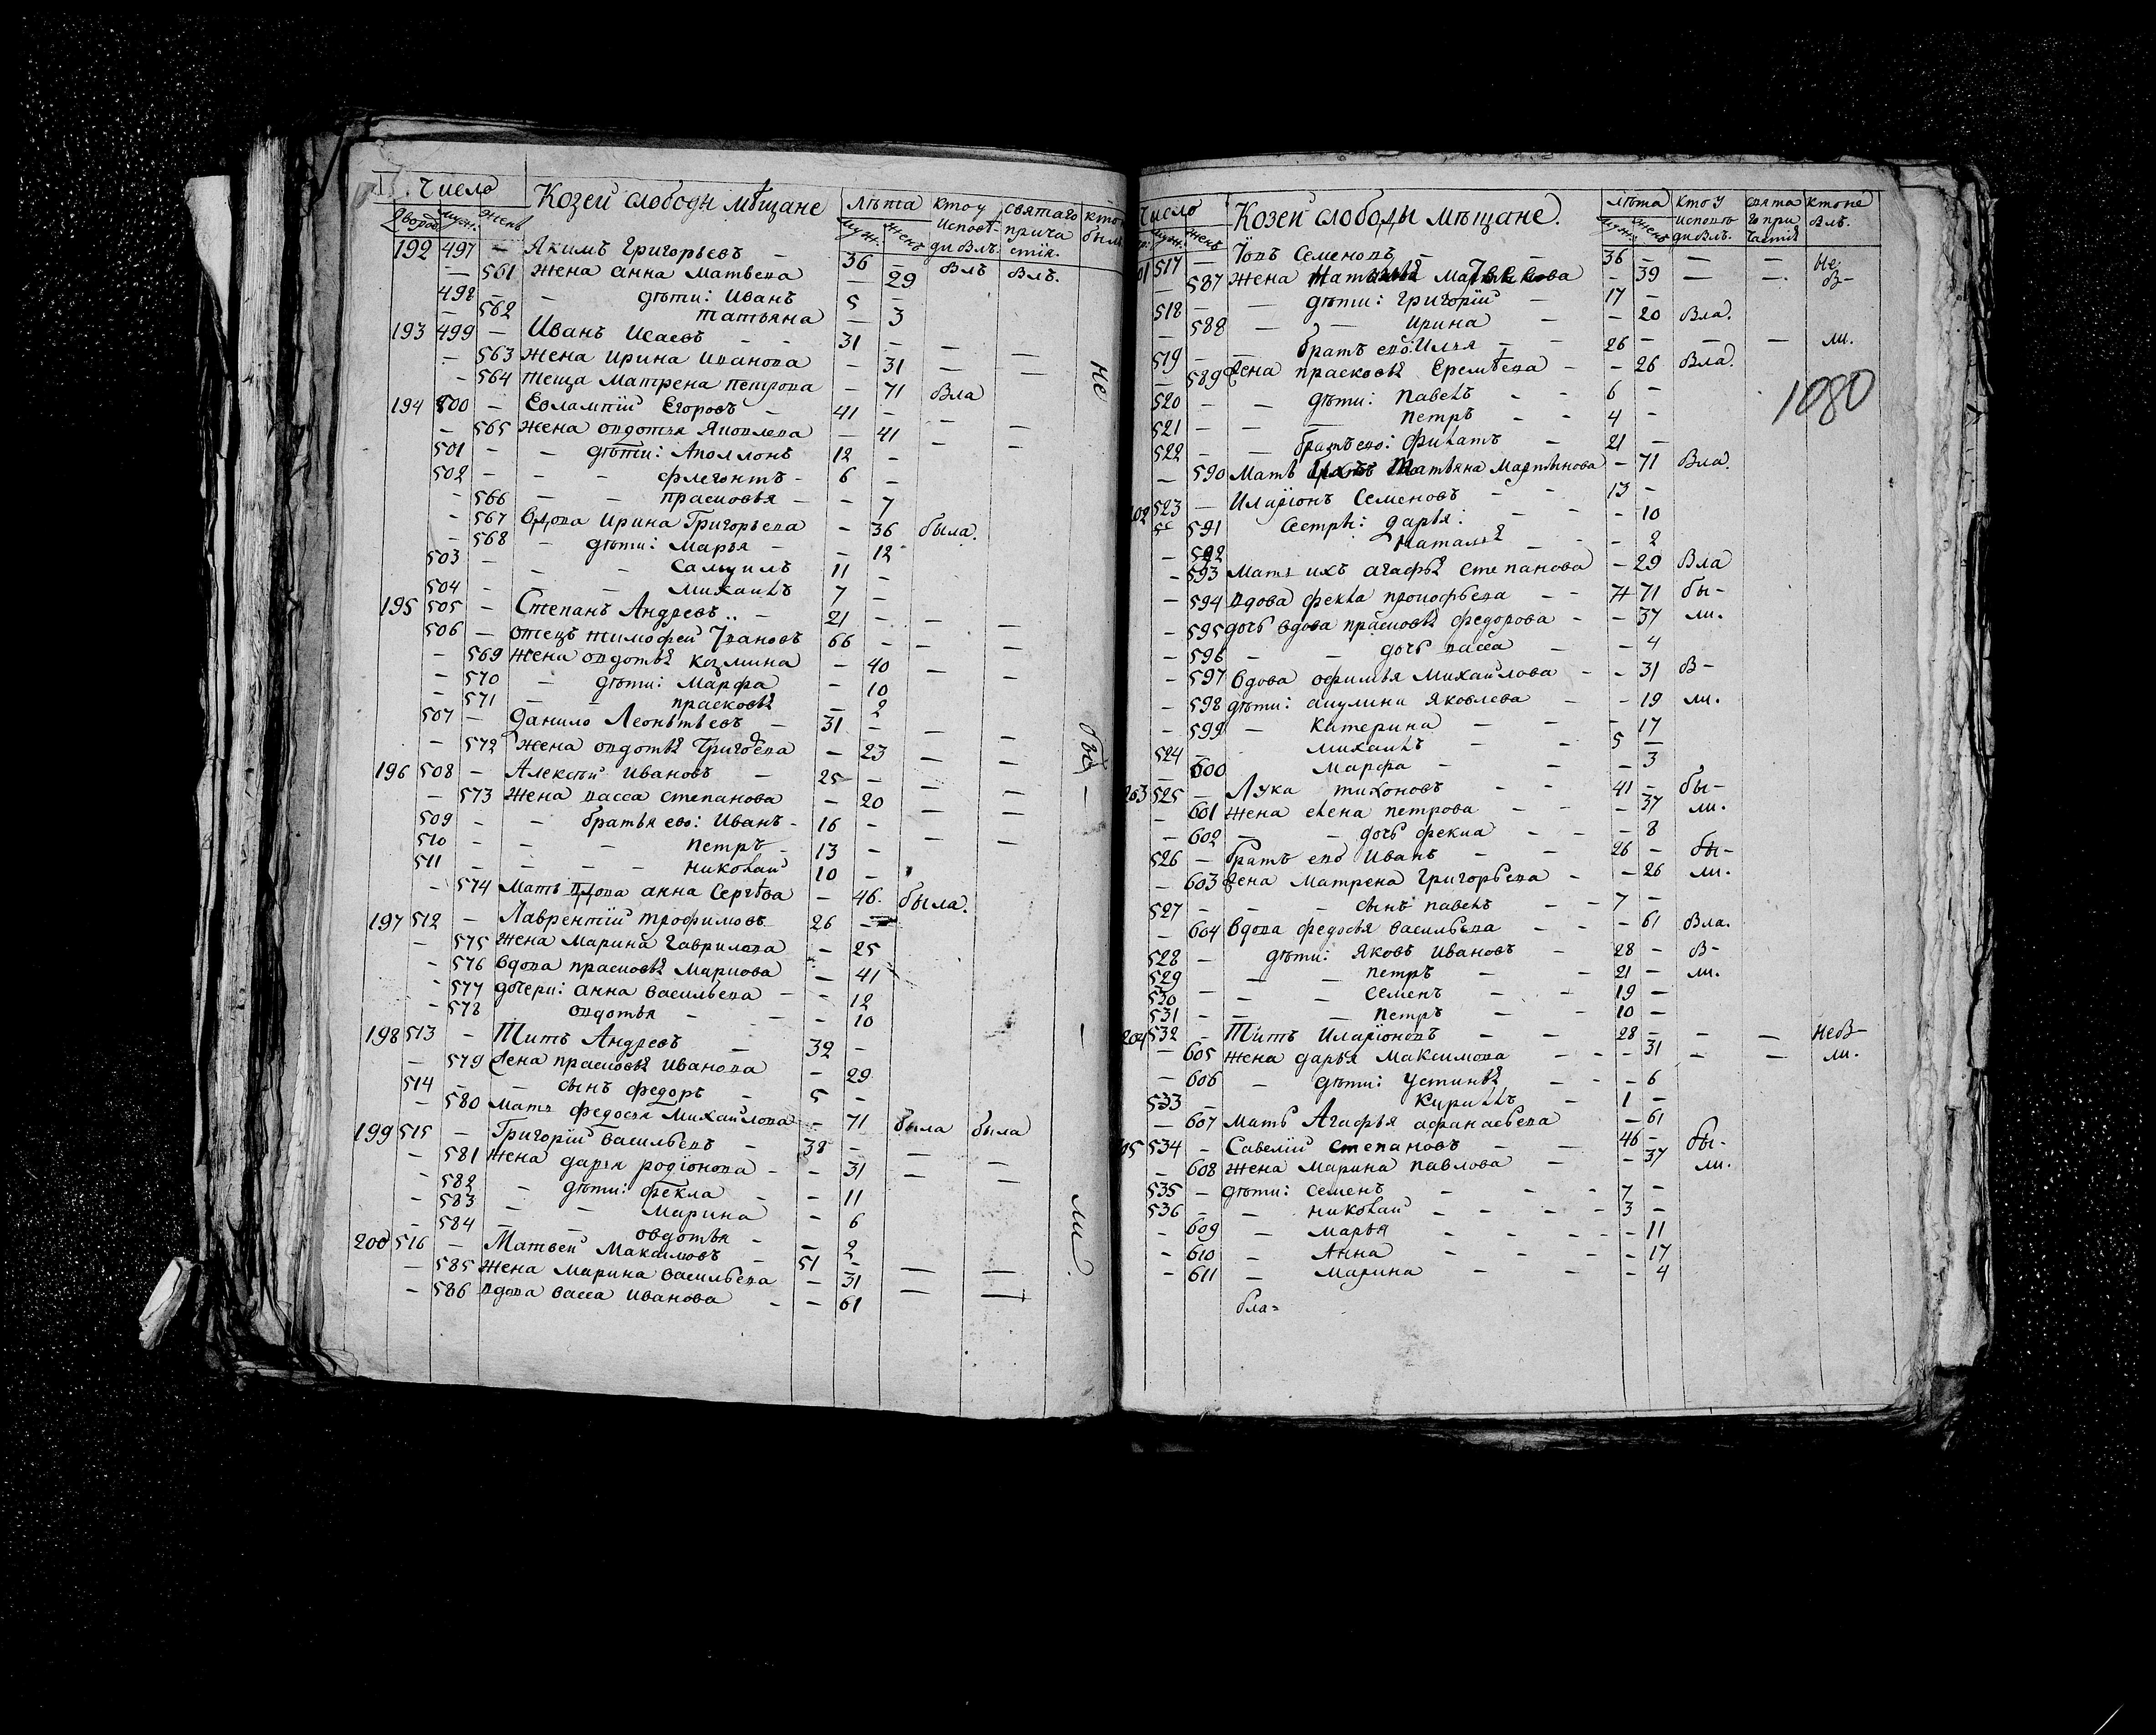 Число Козей слободы мѣщане лѣта кто у святаго
дворов мужс. женс. мужс. женс. исповѣ- прича
ди былъ. стія.
192 497 — Якимъ Григорьевъ — 36 — былъ былъ.
— 561 Жена анна Матвева — 29
498 — — дѣти: Иванъ 5 —
— 562 татьяна — 3
193 499 — Иванъ Исаевъ — 31 — — —
— 563 жена Ирина Иванова — 31 — —
— 564 теща Матрена Петрова — 71 Была
194 500 — Евлампій Егоровъ — 41 — — —
— 565 жена овдотья Яковлева — 41 — —
501 — — дѣти: Аполлонъ 12 —
502 — — — флегонтъ — 6 —
— 566 — — прасковья — — 7
— 567 Вдова Ирина Григорьева — 36 была.
— 568 — дѣти: Марья — — 12
503 — — — Самуилъ 11 —
504 — — — михаилъ 7 —
195 505 — Степанъ Андревъ — 21 — — —
506 — отецъ тимофей Ивановъ 66 — — —
— 569 жена овдотья козмина — 40 — —
— 570 — дѣти: Марфа — 10
— 571 — — прасковья — 2
507 — Данило Леонтьевъ — 31 — — —
— 572 жена овдотья Григорева — 23 — —
196 508 — Алексѣй Ивановъ — 25 — — —
— 573 жена васса степанова — 20 — —
509 — — братья ево: Иванъ — 16 — — —
510 — — — петръ — 13 —
511 — — — николай 10 —
— 574 Мать вдова анна Сергѣева — 46. была.
197 512 — Лаврентій трофимовъ 26 —
— 575 жена Марина гаврилова — 25
— 576 вдова прасковья Маркова — 41
— 577 дочери: анна васильева — — 12
— 578 овдотья — — — 10
198 513 — Титъ Андревъ — 32 —
— 579 жена прасковья Иванова — 29
514 — — сынъ федоръ — 5 —
— 580 мать федосья Михайлова — 71 была была
199 515 — Григорій васильевъ — 38 — — —
— 581 жена дарья родіонова — — 31 — —
— 582 — дѣти: фекла — — 11
— 583 — — Марина — 6
— 584 — — овдотья — — 2
200 516 — Матвей Максимовъ — 51 — — —
— 585 жена марина васильева — 31 — —
— 586 вдова васса иванова — — 61
не
бы —
—
ли.
Число Козей слободы мѣщане. лѣта кто у свята кто не
мужс. женс. мужс. женс. исповѣ го при былъ.
ди былъ. частія
517 — Іовъ Семеновъ — — 36 — — — не
— 587 жена — 39 — — б-
518 — — дѣти: григорій — 17 —
— 588 — — Ирина — — 20 Была.
519 — — братъ ево: Илья — — 26 — — — ли.
— 589 жена прасковья Еремѣева — — 26 Была.
520 — — дѣти: павелъ — — 6 —
521 — — — петръ — — 4 —
522 — — братъ ево: филатъ — 21 —
— 590 Мать татьяна Мартынова — 71 Была.
202 523 — Иларіонъ Семеновъ — — 13 —
591 Сестры: дарья: — — — 10
— 592 наталья — — — 2
— 593 мать ихъ агафья степанова — 29 Была
— 594 вдова фекла прокофьева — — 71 бы-
— 595 дочь вдова прасковья федорова — — 37 ли.
— 596 — — дочь васса — — 4
— 597 вдова офимья михайлова — — 31 б-
— 598 дѣти: акулина яковлева — — 19 ли.
— 599 — катерина — — — 17
524 — — михаилъ — — 5 —
— 600 марфа — — — 3
203 525 — Лука тихоновъ — — 41 — бы-
— 601 жена елена петрова — — — 37 ли.
— 602 — — дочь фекла — — — 8
526 — братъ ево Иванъ — — 26 — бы-
— 603 жена матрена григорьева — — 26 ли.
527 — — — сынъ павелъ — — 7 —
— 604 вдова федосья васильева — — — 61 Была.
528 — дѣти: яковъ ивановъ — 28 — б-
529 — — — петръ — — 21 — ли.
530 — — — семенъ — — 19 —
531 — — — петръ — — 10 —
204 532 — Титъ Иларіоновъ — — 28 — — — не б-
— 605 жена дарья максимова — — — 31 — — ли.
— 606 — дѣти: устинья — — — 6
533 — кирилъ — 1 —
— 607 мать Агафья афанасьева — 61
205 534 — Савелій степановъ — — 46 — бы-
— 608 жена марина павлова — — 37 ли.
535 — дѣти: семенъ — — — 7 —
536 — — николай — — — — 3 —
— 609 — марья — — — — — 11
— 610 — Анна — — — — 17
— 611 — марина — — — 4
бла-
1080